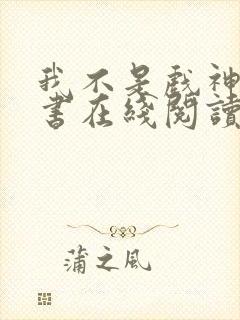 我不是戲神
書在綫閱讀
蒲之風